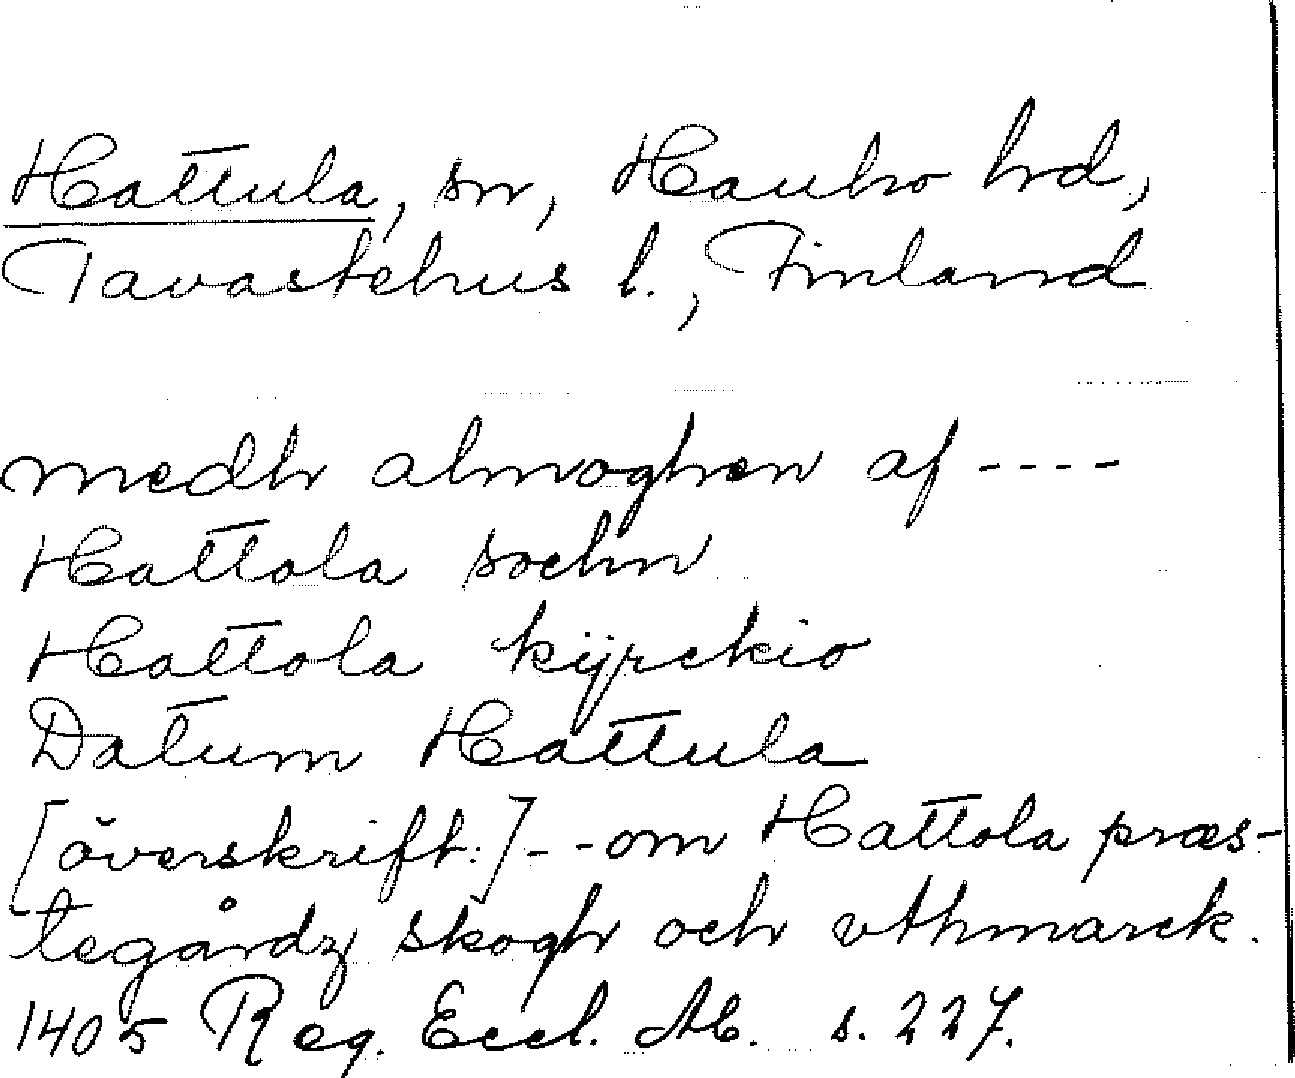 Hattula, sn, Hauho hd,
Tavastehus l., Finland
medh almoghen af ----
Hattola sochn
Hattola kÿrckio
Datum Hattula
[överskrift:] - - om Hattola præs-
tegårdz skogh och vthmarck.
1405 Reg. Eccl. Ab. s. 227.